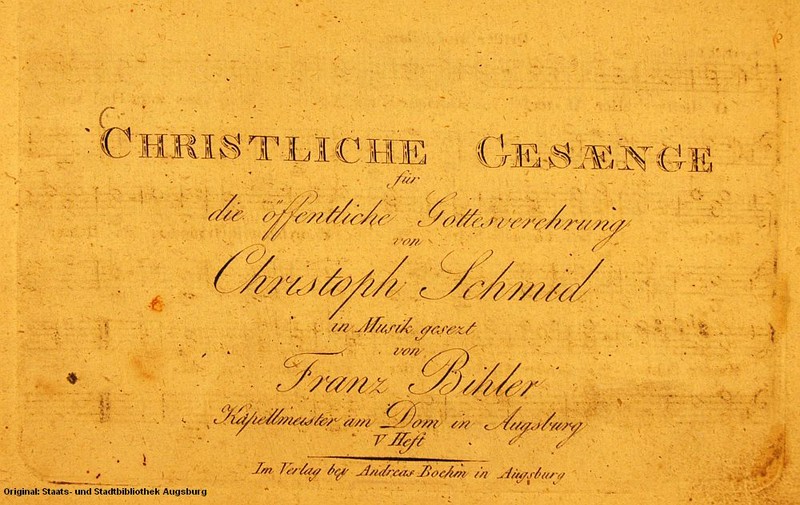 CHRISTLICHE GESÆNGE
für
die öffentliche Gottesverehrung
von
Christoph Schmid
in Musik gesezt
von
Franz Bihler
Kapellmeister am Dom in Augsburg
V Heft
Im Verlag bey Andreas Boehm in Augsburg
Original: Staats- und Stadtbibliothek Augsburg